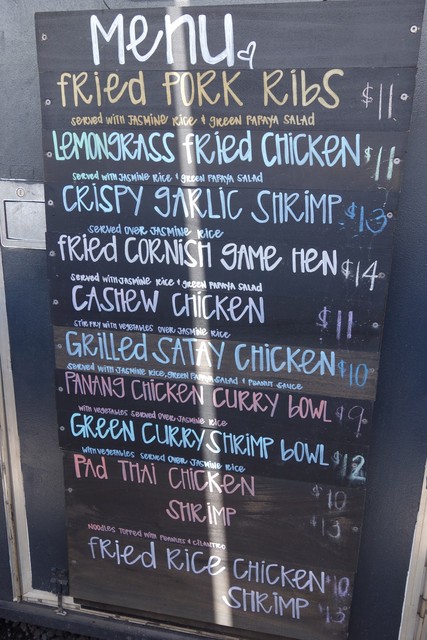 Menu
fried PORK RIBS $11
served with jasmine rice & green papaya salad
LEMONGRASS fried CHICKEN $11
served with jasmine rice & green papaya salad
CRISPY GARLIC SHRIMP $13
served over jasmine rice
fried CORNISH GAME HEN $14
served with jasmine rice & green papaya salad
CASHEW CHICKEN $11
stir fry with vegetables over jasmine rice
GRILLED SATAY CHICKEN $10
served with jasmine rice, green papaya salad & peanut sauce
PANANG CHICKEN CURRY BOWL $9
with vegetables served over jasmine rice
GREEN CURRY SHRIMP BOWL $12
with vegetables served over jasmine rice
PAD THAI CHICKEN $10
SHRIMP $13
noodles topped with peanuts & cilantro
fried RICE CHICKEN $10
SHRIMP $13